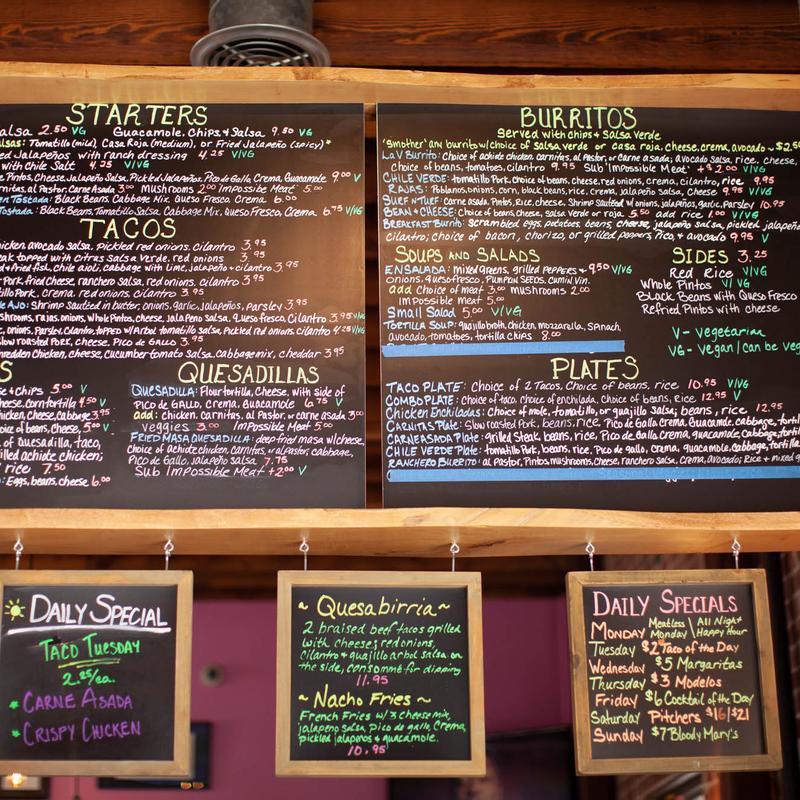 STARTERS
alsa 2.50 VG Guacamole, Chips, & Salsa 9.50 VG
alsas: Tomatillo (mild), Casa Roja (medium), or Fried Jalapeño (spicy)*
ed Jalapeños with ranch dressing 4.25 V/VG
with Chile Salt 4.25 V/VG
e, Pintos, Cheese, Jalapeño Salsa, Pickled Jalapeños, Pico de Gallo, Crema, Guacamole 9.00 V
rnitas, al Pastor, Carne Asada 3.00 mushrooms 2.00 Impossible Meat 5.00
en Tostada: Black Beans, Cabbage Mix, Queso Fresco, Crema 6.00
Tostada: Black Beans, Tomatillo Salsa, Cabbage Mix, Queso Fresco, Crema 6.75 V/VG
TACOS
hicken, avocado salsa, pickled red onions, cilantro 3.95
eak topped with citrus salsa verde, red onions 3.95
d & fried fish, chile aioli, cabbage with lime, jalapeño & cilantro 3.95
Pork, fried cheese, ranchero salsa, red onions, cilantro 3.95
tillo Pork, Crema, red onions, cilantro 3.95
E AJO: Shrimp Sautéed in butter, onions, garlic, jalapeños, parsley 3.95
shrooms, rajas, onions, whole Pintos, cheese, jalapeño salsa, queso fresco, cilantro 3.95 V/VG
e, onions, parsley, cilantro, topped w/Arbol tomatillo salsa, pickled red onions, cilantro 4.25 V/VG
low roasted Pork, cheese, Pico de Gallo 3.95
hredden chicken, cheese, cucumber-tomato salsa, cabbage mix, cheddar 3.95
S
& chips 5.00 V
cheese, corn tortilla 4.50 V
hicken, cheese, cabbage 3.95
oice of beans, cheese, 5.00 V
of quesadilla, taco,
illed achiote chicken;
rice 7.50
o: Eggs, beans, cheese 6.00
QUESADILLAS
QUESADILLA: Flour tortilla, Cheese, with side of
Pico de Gallo, Crema, Guacamole 6.75 V
add: chicken, carnitas, al Pastor, or carne asada 3.00
veggies 3.00 Impossible Meat 5.00
FRIED MASA QUESADILLA: deep fried masa w/cheese,
Choice of achiote chicken, carnitas, or al pastor, cabbage,
Pico de Gallo, jalapeño salsa 7.75
Sub Impossible Meat +2.00 V
BURRITOS
Served with chips & Salsa Verde
'Smother' any burrito w/choice of salsa verde or casa roja, cheese, crema, avocado ~ $2.50
LA V Burrito: Choice of achiote chicken, carnitas, al Pastor, or Carne asada; avocado salsa, rice, cheese,
choice of beans, tomatoes, cilantro 9.95 Sub 'Impossible Meat' +$2.00 V/VG
CHILE VERDE: tomatillo Pork, choice of beans, cheese, red onions, crema, cilantro, rice 9.95
RAJAS: Poblanos, onions, corn, black beans, rice, crema, jalapeño salsa, Cheese 9.95 V/VG
SURF N TURF: Carne asada, Pintos, Rice, cheese, Shrimp Sautéed w/onions, jalapeños, garlic, parsley 10.95
BEAN & CHEESE: choice of beans, cheese, salsa verde or roja 5.50 add rice 1.00 V/VG
BREAKFAST Burrito: scrambled eggs, potatoes, beans, cheese, jalapeño salsa, pickled jalapeño
cilantro; choice of bacon, chorizo, or grilled peppers, Pico & avocado 9.95 V
SOUPS AND SALADS
ENSALADA: mixed greens, grilled PEPPERS & 9.50 V/VG
onions, queso fresco, PUMPKIN SEEDS, CUMIN VIN.
add choice of meat 3.00 mushrooms 2.00
impossible meat 5.00
Small Salad 5.00 V/VG
TORTILLA SOUP: guajillo broth, Chicken, mozzarella, spinach,
avocado, tomatoes, tortilla chips 8.00
SIDES 3.25
Red Rice V/VG
Whole Pintos V/VG
Black Beans with Queso Fresco
Refried Pintos with cheese
V- Vegetarian
VG- Vegan/can be veg
PLATES
TACO PLATE: Choice of 2 Tacos, Choice of beans, rice 10.95 V/VG
COMBO PLATE: choice of taco, choice of enchilada, Choice of beans, rice 12.95 V
Chicken Enchiladas: Choice of mole, tomatillo, or guajillo salsa; beans, rice 12.95
CARNITAS Plate: Slow roasted Pork, beans, rice, Pico de Gallo, Crema, Guacamole, Cabbage, tortil
CARNE ASADA Plate: grilled Steak, beans, rice, Pico de Gallo, crema, guacamole, Cabbage, tort
CHILE VERDE PLATE: tomatillo Pork, beans, rice, Pico de Gallo, crema, guacamole, cabbage, tortil
RANCHERO BURRITO: al Pastor, Pintos, mushrooms, cheese, ranchero salsa, Crema, avocado; Rice + mixed g
DAILY SPECIAL
TACO TUESDAY
2.25/ea.
* CARNE ASADA
* CRISPY CHICKEN
~ Quesabirria ~
2 braised beef tacos grilled
with cheese, red onions,
cilantro & guajillo arbol salsa on
the side, consommé for dipping
11.95
~ Nacho Fries ~
French Fries w/ 3 cheese mix,
jalapeño salsa, Pico de gallo, Crema,
pickled jalapeños & guacamole.
10.95
DAILY SPECIALS
MONDAY Meatless Monday \ All Night Happy Hour
Tuesday $2 Taco of the Day
Wednesday $5 Margaritas
Thursday $3 Modelos
Friday $6 Cocktail of the Day
Saturday Pitchers $16|$21
Sunday $7 Bloody Mary's